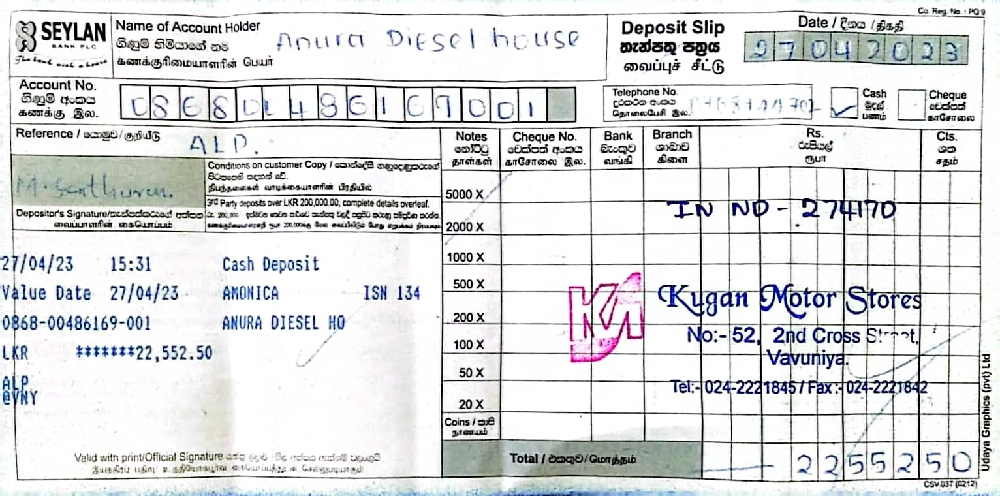 Co. Reg. No. : PQ 9
SEYLAN
BANK PLC
The bank with a heart
Name of Account Holder
ගිණුම් හිමියාගේ නම
கணக்குரிமையாளரின் பெயர்
Anura Diesel house
Deposit Slip
තැන්පතු පත්‍රය
வைப்புச் சீட்டு
Date / දිනය / திகதி
27042023
Account No.
ගිණුම් අංකය
கணக்கு இல.
Telephone No.
දුරකථන අංකය
தொலைபேசி இல.
Cash
මුදල්
பணம்
Cheque
චෙක්පත්
காசோலை
Reference /
ALP.
Conditions on customer Copy /
3rd Party deposits over LKR 200,000.00, complete details overleaf.
Depositor's Signature/
வைப்பாளரின் கையொப்பம்
Notes
නෝට්ටු
தாள்கள்
Cheque No.
චෙක්පත් අංකය
காசோலை இல.
Bank
බැංකුව
வங்கி
Branch
ශාඛාව
கிளை
Rs.
රුපියල්
ரூபா
Cts.
ශත
சதம்
5000 X
2000 X
1000 X
500 X
200 X
100 X
50 X
20 X
Coins / කාසි
நாணயம்
IN NO - 274170
27/04/23 15:31 Cash Deposit
Value Date 27/04/23 AMONICA ISN 134
0868-00486169-001 ANURA DIESEL HO
LKR *******22,552.50
ALP
@VNY
KM
Kugan Motor Stores
No:- 52, 2nd Cross Street,
Vavuniya.
Tel:- 024-2221845 / Fax:- 024-2221842
Valid with print/Official Signature
Total / එකතුව/மொத்தம்
2255250
Udaya Graphics (pvt) Ltd
CSV.037 (0212)